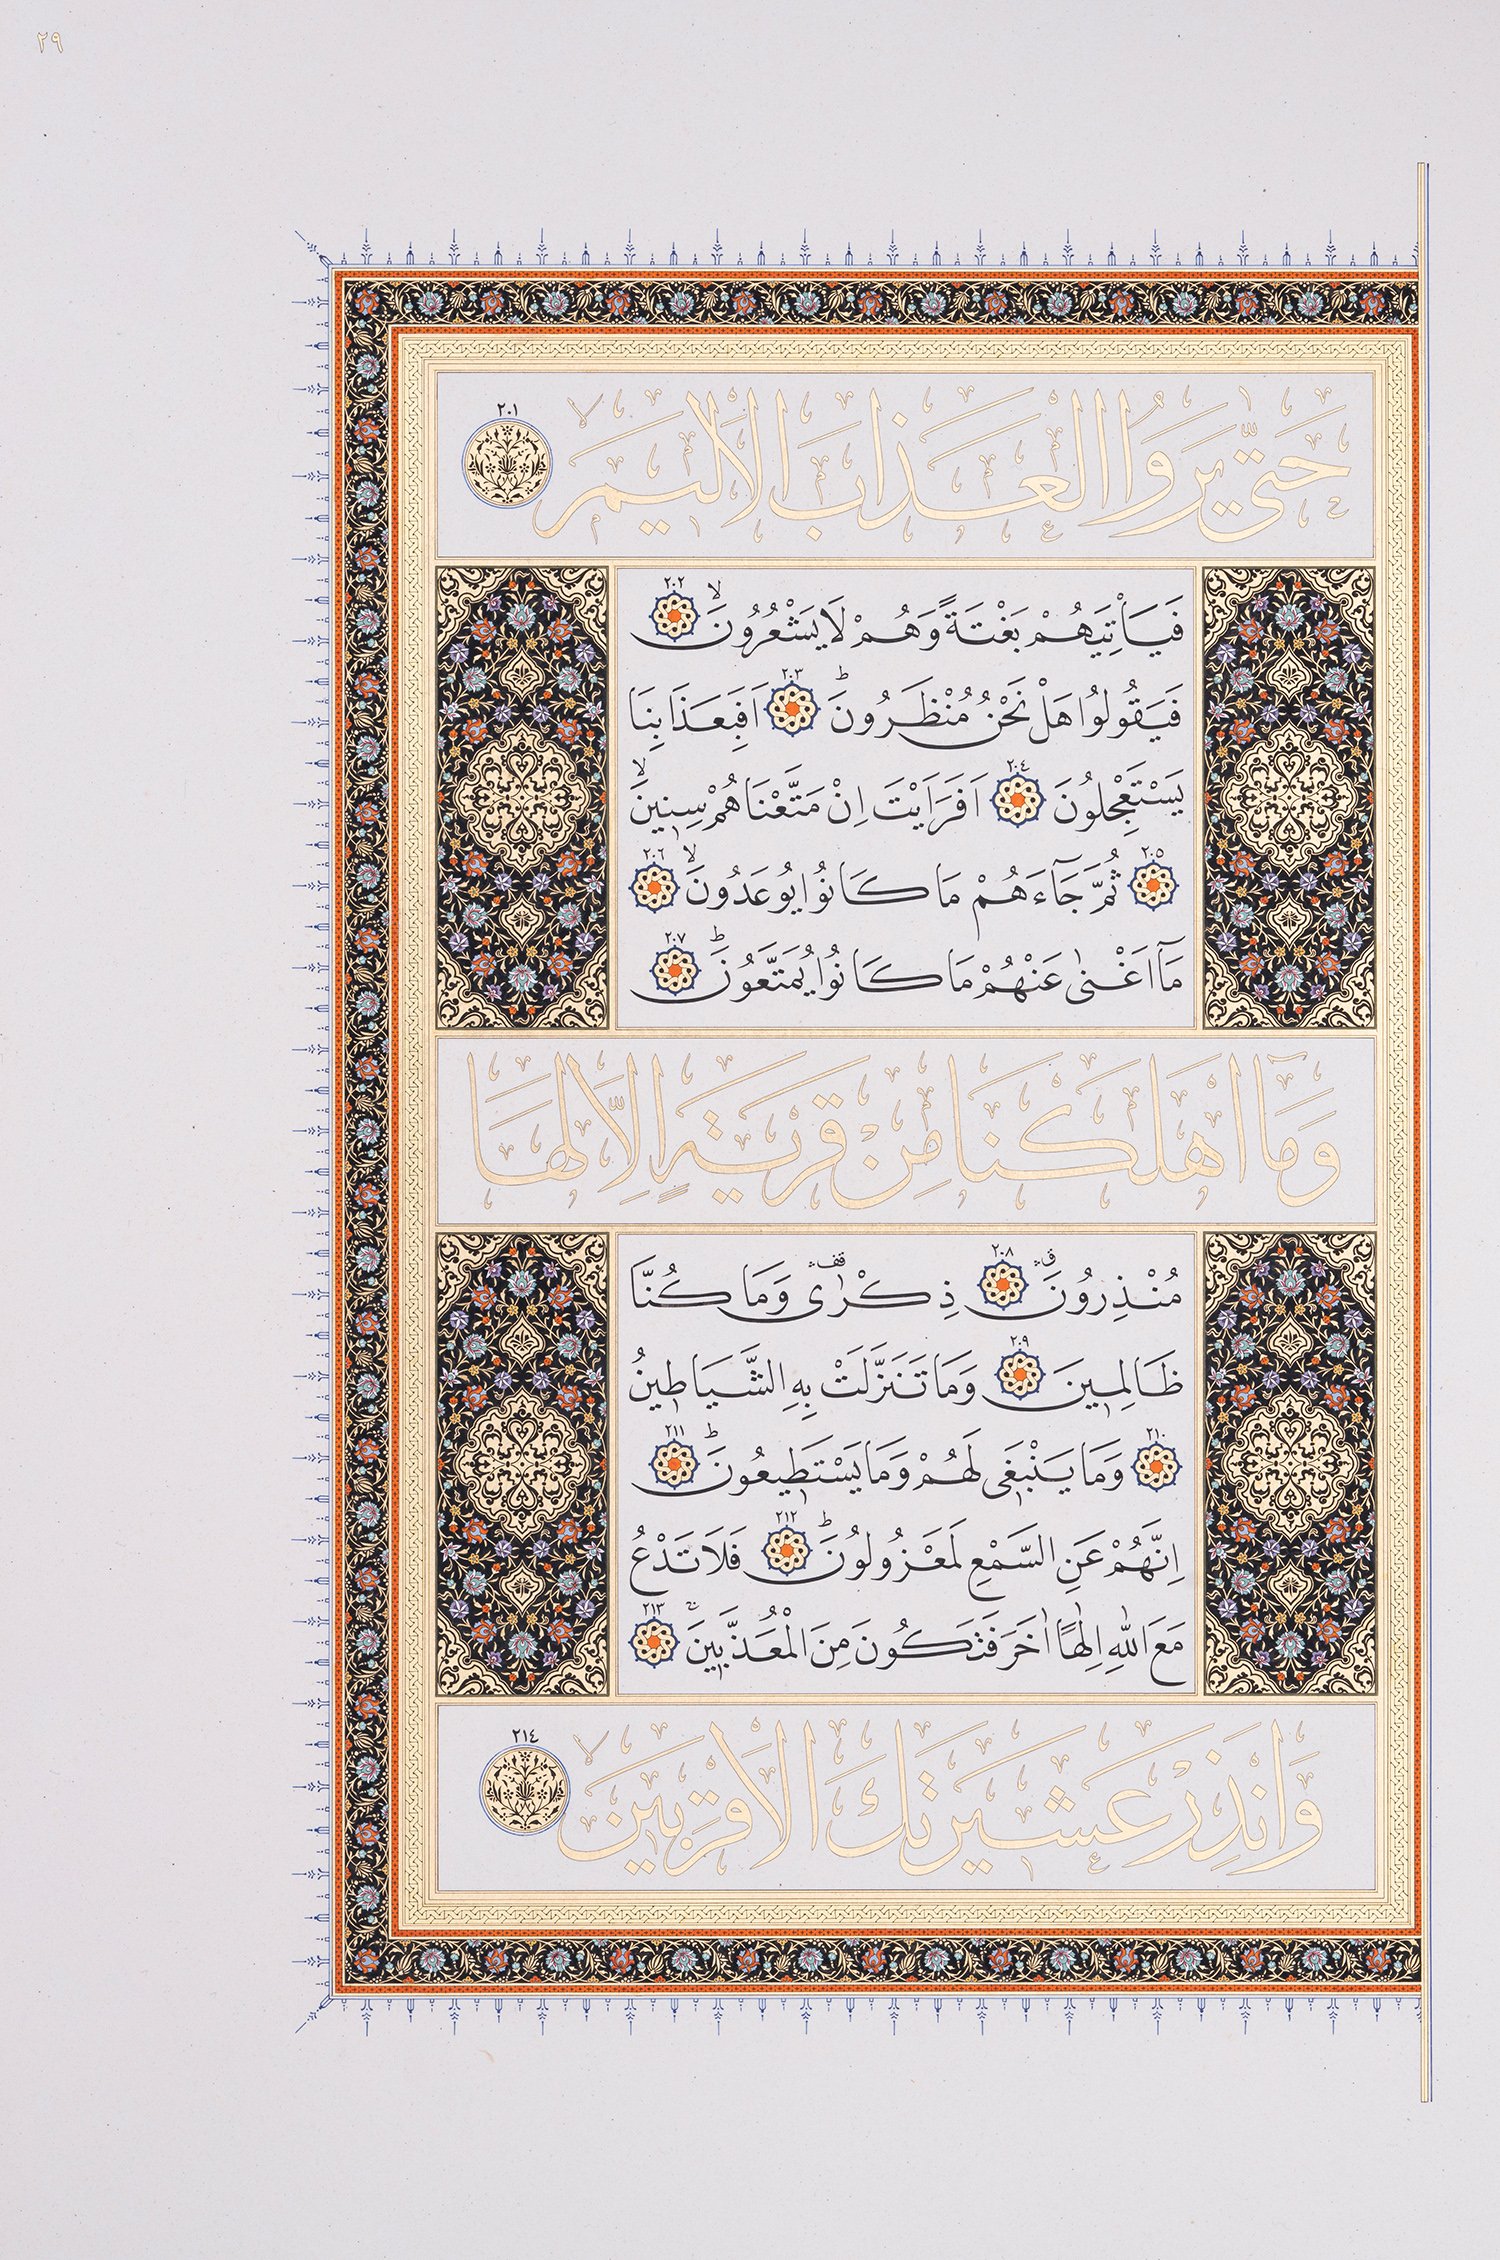 ٢٩
حَتّٰى يَرَوُا الْعَذَابَ الْاَلٖيمَۙ ٢٠١
فَيَاْتِيَهُمْ بَغْتَةً وَهُمْ لَا يَشْعُرُونَۙ ٢٠٢
فَيَقُولُوا هَلْ نَحْنُ مُنْظَرُونَؕ ٢٠٣ اَفَبِعَذَابِنَا
يَسْتَعْجِلُونَ ٢٠٤ اَفَرَاَيْتَ اِنْ مَتَّعْنَاهُمْ سِنٖينَۙ
٢٠٥ ثُمَّ جَٓاءَهُمْ مَا كَانُوا يُوعَدُونَۙ ٢٠٦
مَٓا اَغْنٰى عَنْهُمْ مَا كَانُوا يُمَتَّعُونَؕ ٢٠٧
وَمَٓا اَهْلَكْنَا مِنْ قَرْيَةٍ اِلَّا لَهَا
مُنْذِرُونَۗ ٢٠٨ ذِكْرٰى وَمَا كُنَّا
ظَالِمٖينَ ٢٠٩ وَمَا تَنَزَّلَتْ بِهِ الشَّيَاطٖينُ
٢١٠ وَمَا يَنْبَغٖى لَهُمْ وَمَا يَسْتَطٖيعُونَؕ ٢١١
اِنَّهُمْ عَنِ السَّمْعِ لَمَعْزُولُونَؕ ٢١٢ فَلَا تَدْعُ
مَعَ اللّٰهِ اِلٰهًا اٰخَرَ فَتَكُونَ مِنَ الْمُعَذَّبٖينَۚ ٢١٣
وَاَنْذِرْ عَشٖيرَتَكَ الْاَقْرَبٖينَۙ ٢١٤